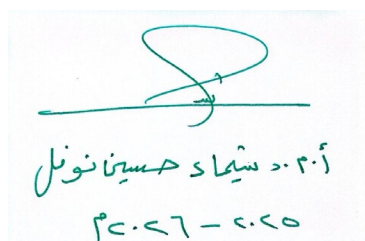 أ.م.د شيماء حسين نوفل
٢٠٢٥ – ٢٠٢٦م